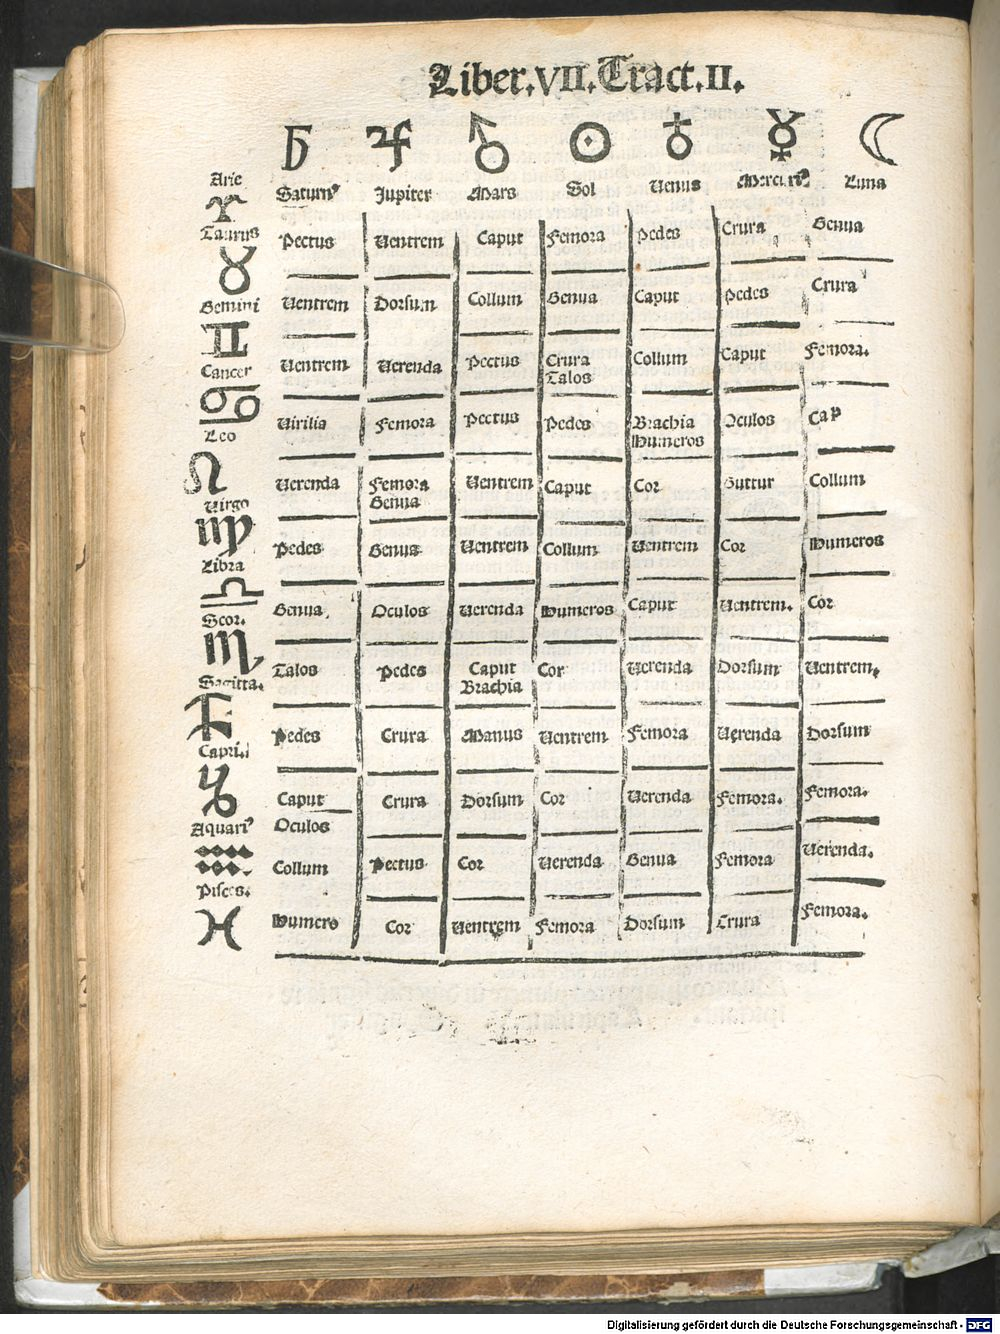 Liber. VII. Tract. II.
♄ ♃ ♂ ☉ ♀ ☿ ☾
Saturnꝰ Jupiter Mars Sol Venus Mercuriꝰ Luna
Arie
♈ Pectus Ventrem Caput Femora Pedes Crura Genua
Taurus
♉ Ventrem Dorsum Collum Genua Caput Pedes Crura
Gemini
♊ Ventrem Verenda Pectus Crura Talos Collum Caput Femora.
Cancer
♋ Virilia Femora Pectus Pedes Brachia Humeros Oculos Cap
Leo
♌ Verenda Femora Genua Ventrem Caput Cor Guttur Collum
Virgo
♍ Pedes Genua Ventrem Collum Ventrem Cor Humeros
Libra
♎ Genua. Oculos Verenda Humeros Caput Ventrem. Cor
Scor.
♏ Talos Pedes Caput Brachia Cor Verenda Dorsum Ventrem.
Sagitta.
♐ Pedes Crura Manus Ventrem Femora Verenda Dorsum
Capri.
♑ Caput Oculos Crura Dorsum Cor Verenda Femora. Femora.
Aquariꝰ
♒ Collum Pectus Cor Verenda Genua Femora Verenda.
Pisces.
♓ Humero Cor Ventrem Femora Dorsum Crura Femora.
Digitalisierung gefördert durch die Deutsche Forschungsgemeinschaft - DFG